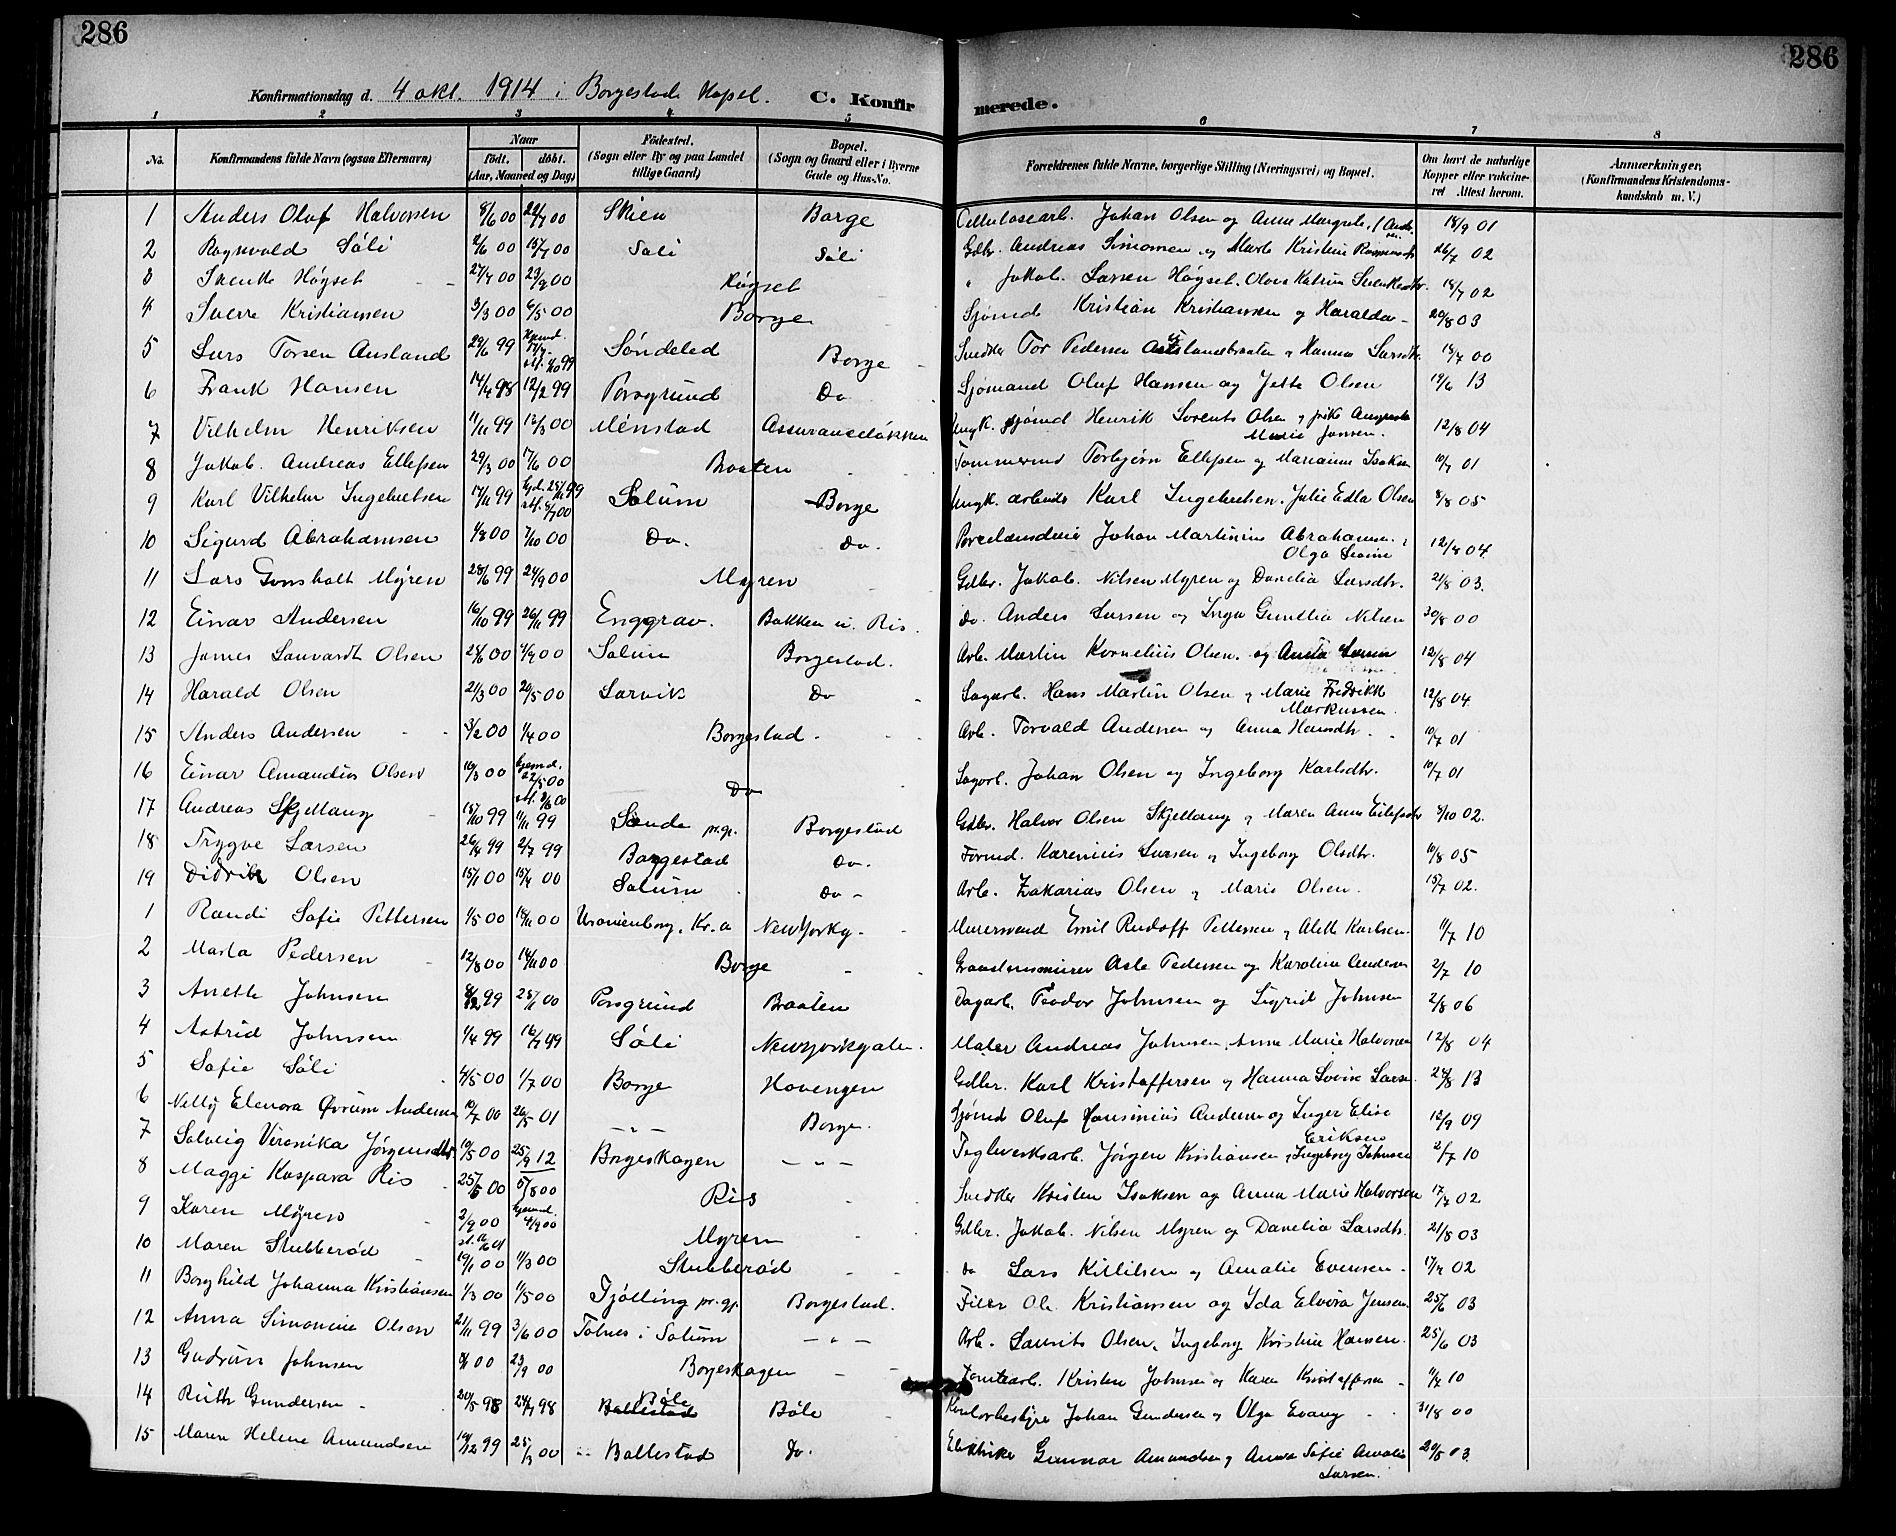 286
286
Konfirmationsdag d. 4 okt. 1914 i Borgestad Kapel. C. Konfirmerede.
1 2 3 4 5 6 7 8
No. Konfirmandens fulde Navn (ogsaa Efternavn) Naar født. døbt. (Aar, Maaned og Dag) Fødested. (Sogn eller By og paa Landet tillige Gaard) Bopæl. (Sogn og Gaard eller i Byerne Gade og Hus-No. Forældrenes fulde Navne, borgerlige Stilling (Næringsvei) og Bopæl. Om havt de naturlige Kopper eller vakcineret Attest herom. Anmærkninger, (Konfirmandens Kristendomskundskab m. V.)
1 Anders Oluf Halvorsen 8/6 00 22/7 00 Skien Borge Cellulosearb. Johan Olsen og Anne Margrete 18/9 01
2 Ragnvald Søli 2/6 00 15/7 00 Søli Søli Gdbr. Andreas Simonsen og Marte Kristine 26/7 02
3 Skenth Høgset 27/7 00 23/9 00 Høgset " Jakob Larsen Høgset. 18/7 02
4 Sverre Kristiansen 3/3 00 6/5 00 Borge Sjømd Kristian Kristiansen og Haralda 20/8 03
5 Lars Torsen Ausland 29/6 99 Søndeled Borge Snedker Tor Pedersen og Hanna Larsdtr. 18/7 00
6 Frank Hansen 14/4 98 12/2 99 Porsgrund Do Sjømand Oluf Hansen og Jette Olsen 19/6 13
7 Vilhelm Henriksen 11/11 99 12/3 00 Ménstad Assuranceløkken Ungk. sjømd Henrik Lorents Olsen
Marie Jansen. 12/8 04
8 Jakob Andreas Ellefsen 29/3 00 17/6 00 Braaten Tømmermd Torbjørn Ellefsen og Mariane Isaksen 10/7 01
9 Karl Vilhelm Ingebretsen 17/11 99 Solum Borge Ungk. arbeider Karl Ingebretsen. Julie Edla Olsen 8/8 05
10 Sigurd Abrahamsen 1/8 00 7/10 00 Do. Do. Johan Martinius Abrahamsen
Olga 12/8 04
11 Lars Gonsholt Myren 28/6 99 24/9 00 Myren Gdbr. Jakob Nilsen Myren og Danelia Larsdtr. 21/8 03.
12 Einar Andersen 16/10 99 26/11 99 Enggrav. Bakken u. Ris. Do. Anders Larsen og Inga Gunelia Nilsen 30/8 00
13 James Lauvardt Olsen 28/6 00 4/9 00 Solum Borgestad. Arb. Martin Kornelius Olsen. og 12/8 04
14 Harald Olsen 21/3 00 20/5 00 Larvik Do Sagarb. Hans Martin Olsen og Marie Fredrikke
Markussen. 12/8 04
15 Anders Andersen 3/2 00 1/4 00 Borgestad. Arb. Torvald Andersen og Anna Hansdtr. 10/7 01
16 Einar Amandus Olsen 16/3 00 Do Sagarb. Johan Olsen og Ingeborg Karlsdtr. 10/7 01
17 Andreas Skjellaug 15/10 99 11/11 99 Sande pr.gj. Borgestad Gdbr. Halvor Olsen Skjellaug og Maren Anne 8/10 02.
18 Trygve Larsen 26/4 99 2/7 99 Borgestad Do. Formd. Karenius Larsen og Ingeborg Olsdtr. 10/8 05
19 Didrik Olsen 15/1 00 15/4 00 Solum Do Arb. Zakarias Olsen og Maris Olsen. 15/7 02.
1 Randi Sofie Pettersen 1/5 00 18/11 00 Uranienborg. Kr.a NewYorkg. Murersvend Emil Rudolf Pettersen og Aleth Karlsen. 11/7 10
2 Marta Pedersen 12/8 00 14/11 00 Borge Asle Pedersen og Karoline Andersen 2/7 10
3 Anette Johnsen 99 25/1 00 Porsgrund Braaten Dagarb. Teodor Johnsen og Sigrid Johnsen 2/8 06
4 Astrid Johnsen 1/4 99 16/7 99 Søli Newyorkgaten. Maler Andreas Johnsen, Anne Marie Halvorsen 12/8 04
5 Sofie Søli 4/5 00 1/7 00 Borge Hovengen Gdbr. Karl Kristoffersen og Hanna Lovise Larsen 24/8 13
6 Nelly Elenora Øvrum Andersen 10/7 00 26/5 01 — " — Borge. Sjømd Oluf Hansinius Andersen og Inger Elise
Eriksen 12/9 09
7 Solveig Veronika Jørgensdtr 19/5 00 25/9 12 Borgeskogen — " — Teglverksarb. Jørgen Kristiansen, Ingeborg Johnsen 2/7 10
8 Maggi Kaspara Ris 25/5 00 5/8 00 Ris Snedker Kristen Isaksen og Anna Marie Halvorsen 17/7 02
9 Karen Myren 2/9 00 4/9 00 Myren Gdbr. Jakob Nilsen Myren og Danelia Larsdtr. 21/8 03
10 Maren Stubberød 19/1 00 11/3 00 Stubberød Do Lars Killilsen og Amalie Evensen 17/7 02
11 Borghild Johanna Kristiansen 1/3 00 11/5 00 Tjølling pr.gj. Borgestad. Filer Ole Kristiansen og Ida Elvira Jensen. 25/6 03
12 Anna Simonine Olsen 21/11 99 3/6 00 Tolnes i Solum — " — Arb. Laurits Olsen, Ingeborg Kristine Hansen. 25/6 03
13 Gudrun Johnsen 00 23/9 00 Borgeskogen Kristen Johnsen og Karen Kristoffersen 11/7 10
14 Ruth Gundersen 20/5 98 24/7 98 Bøle
Ballestad Bøle Johan Gundersen og Olga Evang 31/8 00
15 Maren Helene Amundsen 19/12 99 25/3 00 Ballestad Do. Elektriker Gunnar Amundsen og Anna Sofie Amalie
Larsen. 20/8 03